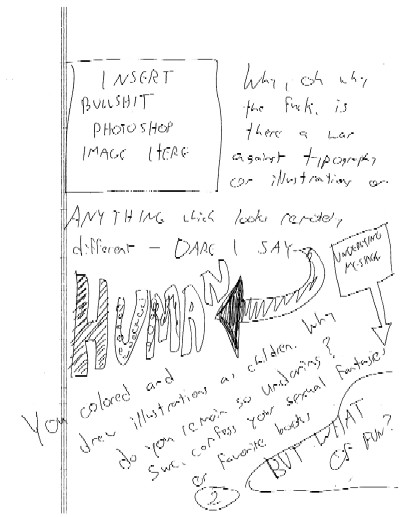 INSERT
BULLSHIT
PHOTOSHOP
IMAGE HERE
Why, oh why
the fuck, is
there a war
against typography
or illustrations or
ANYTHING which looks remotely
different – DARE I SAY –
HUMAN
UNDERLYING
MESSAGE
You colored and
drew illustrations as children. Why
do you remain so undaring?
Sure, confess your sexual fantasies
or favorite books
BUT WHAT
OF FUN?
2